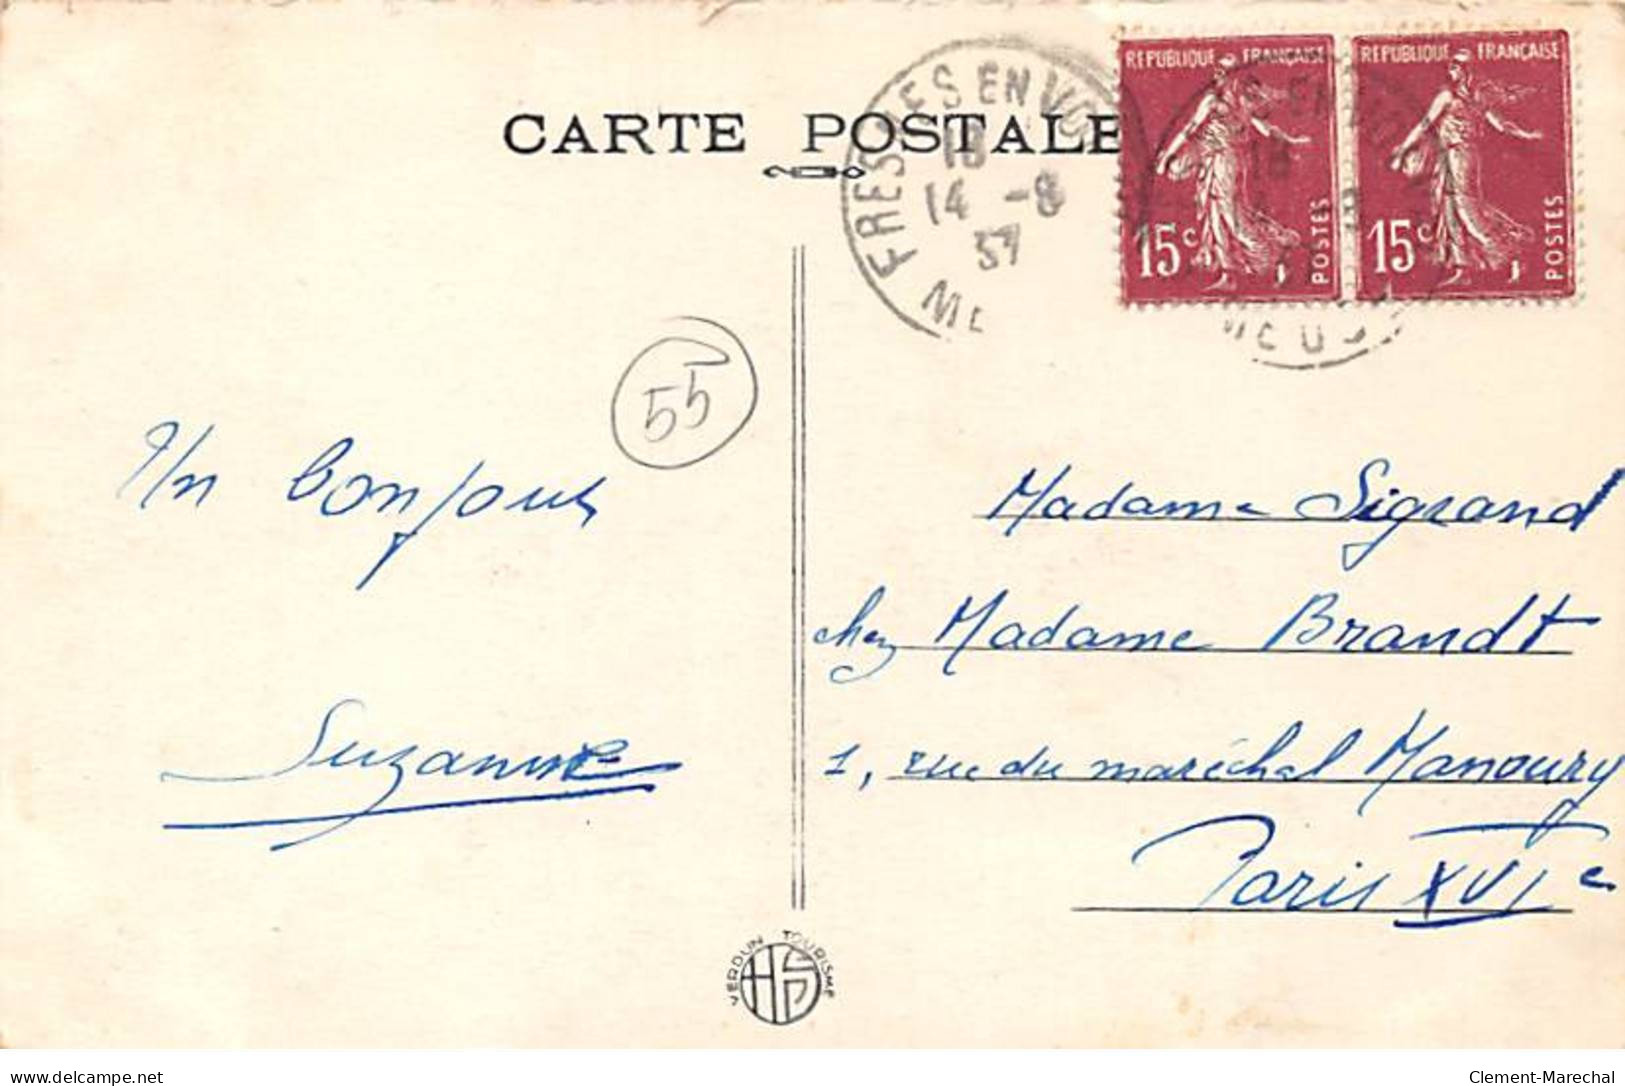 CARTE POSTALE
FRESNES EN WOE
18
14 -8
37
ME
REPUBLIQUE FRANÇAISE
15c
POSTES
REPUBLIQUE FRANÇAISE
15c
POSTES
18
MEUS
55
Un bonjour
Suzanne
Madame Sigrand
chez Madame Brandt
1, rue du maréchal Manoury
Paris XVIe
VERDUN TOURISME
HS
delcampe.net
Clement-Marechal